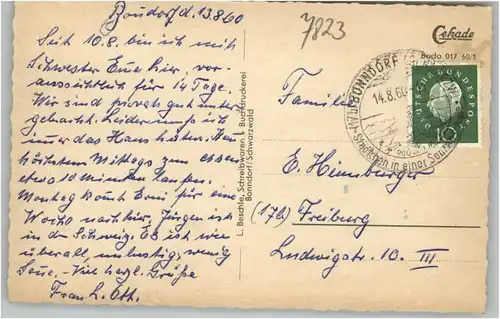 Bonndorf d. 13.8.60
Seit 10.8. bin ich mit
Schwester Eva hier, vor-
aussichtlich für 14 Tage.
Wir sind privat gut unter-
gebracht. Leider muß ich
immer das Haus hüten. Nur
höchstens Mittags zum essen
etwa 10 Minuten laufen.
Montag kommt Erni für eine
Woche nach hier, Jürgen ist
in der Schweiz. Es ist wie
überall, unlustig, wenig
Sonne. - Viel herzl. Grüße
Frau L. Ott.
L. Beschle, Schreibwaren, Buchdruckerei
Bonndorf/Schwarzwald
7823
Cekade
Bodo 017 60/1
BONNDORF
14.8.60
Städtchen in einer
DEUTSCHE BUNDESPOST
10
Familie
E. Heimburger
(17b) Freiburg
Ludwigstr. 10 III